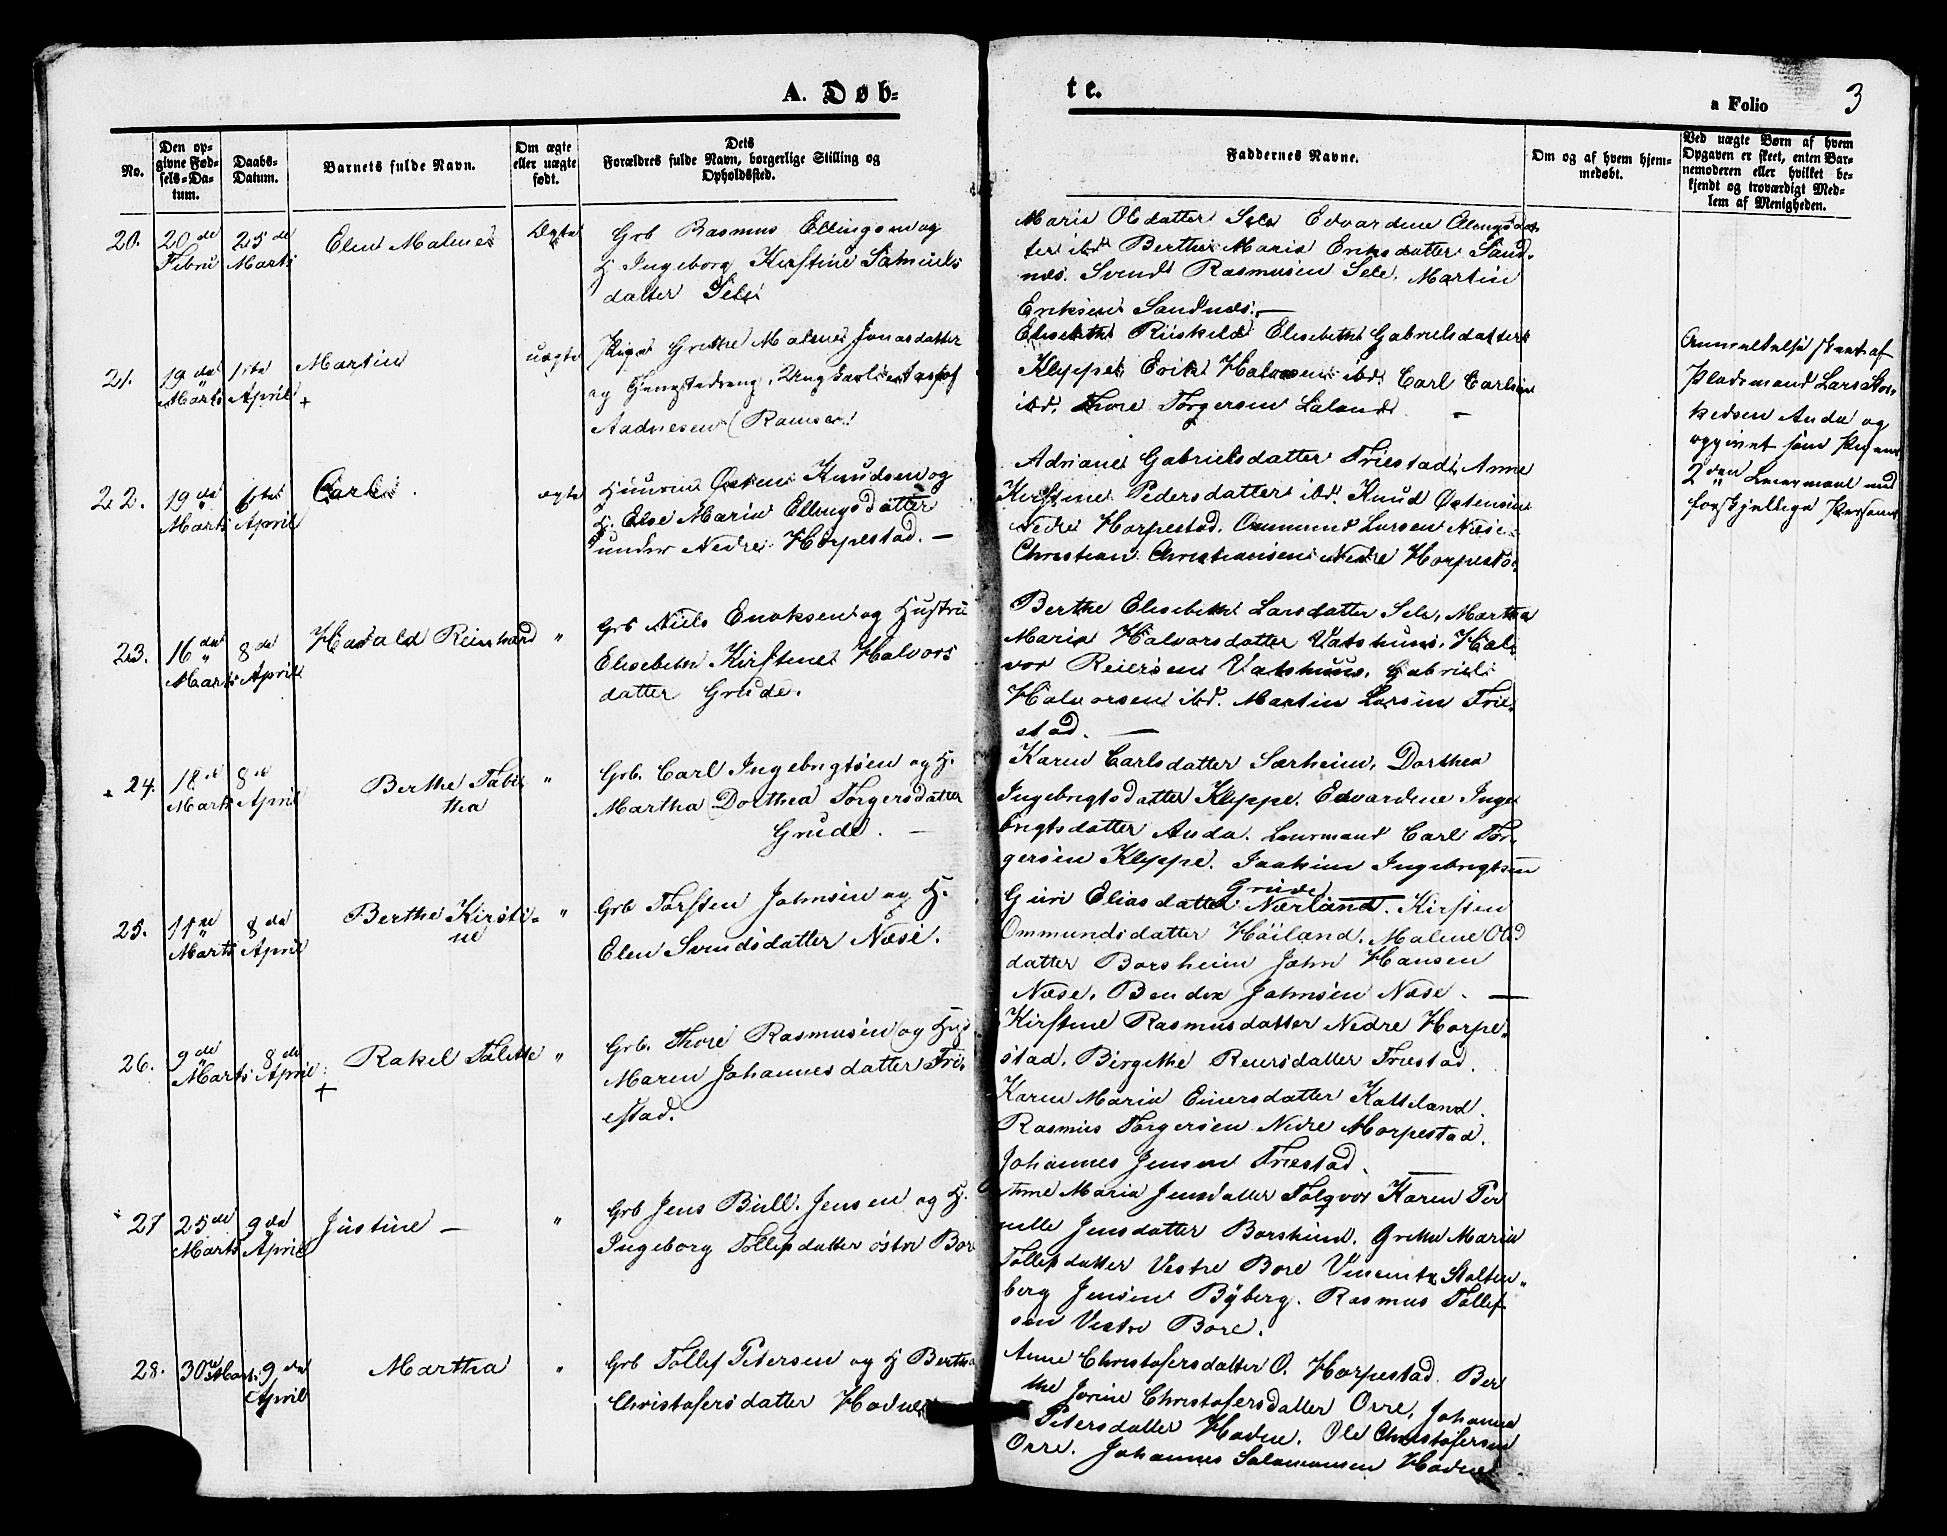 A. Døb-
te.
a Folio 3
No.
Den op-
givne Fød-
sels-Da-
tum.
Daabs-
Datum.
Barnets fulde Navn.
Om ægte
eller uægte
født.
Dets
Forældres fulde Navn, borgerlige Stilling og
Opholdssted.
Faddernes Navne.
Om og af hvem hjem-
medøbt.
Ved uægte Børn af hvem
Opgaven er skeet, enten Bar-
nemoderen eller hvilket be-
kjendt og troværdigt Med-
lem af Menigheden.
20.
20de
Febru
25de
Marts
Elen Malene
Ægte
Grb Rasmus Ellingsen og
H. Ingeborg Kirstine Samuels
datter Sele
Marie Olsdatter Sele Edvardine
ter ibd Berthe Maria Eriksdatter Sand-
næs. Svend Rasmusen Sele, Martin
Eriksen Sandnæs. —
21.
19de
Marts
1ste
April
Martin
+
uægte
Pige Grethe Malene Jonasdatter
og
Aadnesen (Ramser)
Elisabeth Riiskild Elisabeth Gabrielsdatter
Kleppe Erik Halvorsen ibd. Carl Carlsen
ibd. Thore Torgersen Laland. —
Anmeldelse skeet af
Pladsmand Lars
Anda og
opgivet som Pigens
2den Leiermaal med
forskjellige Personer
22.
19de
Marts
6te
April
Carl.
ægte
Huusm Østen Knudsen og
H. Else Maria Ellingsdatter
under Nedre Horpestad. —
Adriane Gabrielsdatter Friestad, Anne
Kirstine Pedersdatter ibd. Knud Østensen
Nedre Horpestad. Ommund Larsen Næse
Christian Christiansen Nedre Horpestad
23.
16de
Marts
8de
April
Harald Reinhard
"
Grb Niels Enoksen og Hustru
Elisebeth Kirstine Halvors
datter Grude.
Berthe Elisebeth Larsdatter Sele, Martha
Maria Halvorsdatter Vatshuus, Hal-
vor Reiersen Vatshuus. Gabriel
Halvorsen ibd. Martin Larsen Frie-
stad. —
24.
18de
Marts
8de
April
Berthe Tabi-
tha
"
Grb. Carl Ingebrigtsen og H.
Martha Dorthea Torgersdatter
Grude. —
Karen Carlsdatter Særheim, Dorthea
Ingebrigtsdatter Kleppe. Edvardine Inge
brigtsdatter Anda. Leurmand Carl Tor-
gersen Kleppe. Joakim Ingebrigtsen
Grude
25.
11te
Marts
8de
April
Berthe Kirsti-
ne
"
Grb Torsten Johnsen og H.
Elen Svendsdatter Næse.
Guri Eliasdatter Nærland. Kirsten
Ommundsdatter Høiland. Malene Ols
datter Borsheim John Hansen
Næse. Bendix Johnsen Næse. —
26.
9de
Marts
8de
April
+
Rakel Talette
"
Grb. Thore Rasmusen og Hus
Maren Johannesdatter Fri-
estad.
Kirstine Rasmusdatter Nedre Horpe-
stad. Birgithe Reiersdatter Friestad.
Karen Maria Einersdatter Katteland.
Rasmus Torgersen Nedre Horpestad.
Johannes Jensen Friestad. —
27
25de
Marts
9de
April
Justine —
"
Grb Jens Bull Jensen og H.
Ingeborg Tollefsdatter østre Bore
Ane Maria Jensdatter Tolgvos Karen Per
nille Jensdatter Borsheim. Grethe Maria
Tollefsdatter Vestre Bore Vincents Stolten-
berg Jensen Byberg. Rasmus Tollef
sen Vestre Bore.
28.
30te Marts
9de
April
Martha
"
Grb Tollef Petersen og H Bertha
Christofersdatter Hodne
Anne Christofersdatter O. Horpestad. Ber
the Jorine Christofersdatter Orre. Johanne
Petersdatter Hodne. Ole Christofersen
Orre. Johannes Salomonsen Hodne